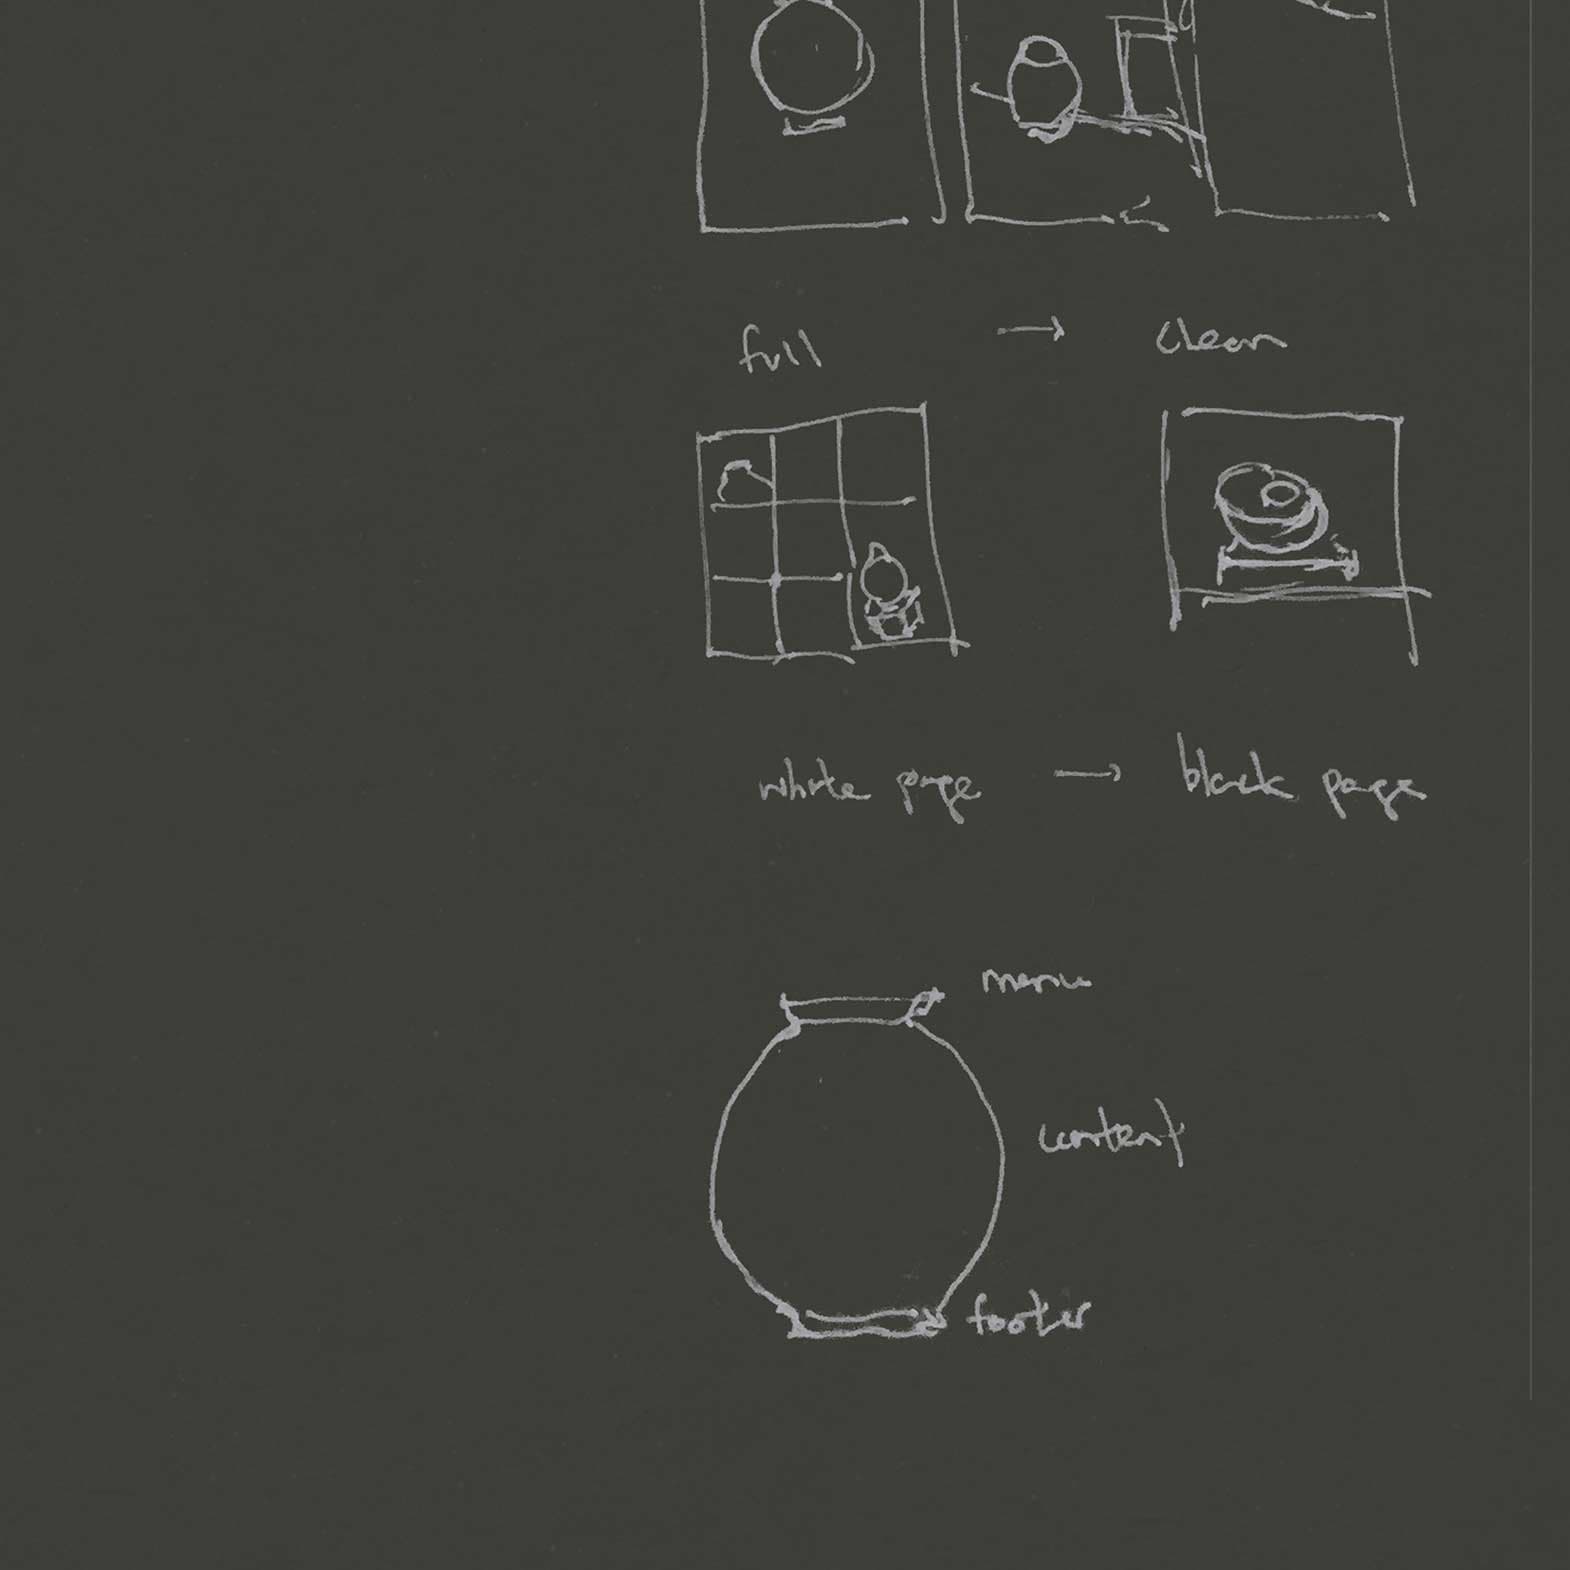 full → clean
white page → black page
menu
content
footer